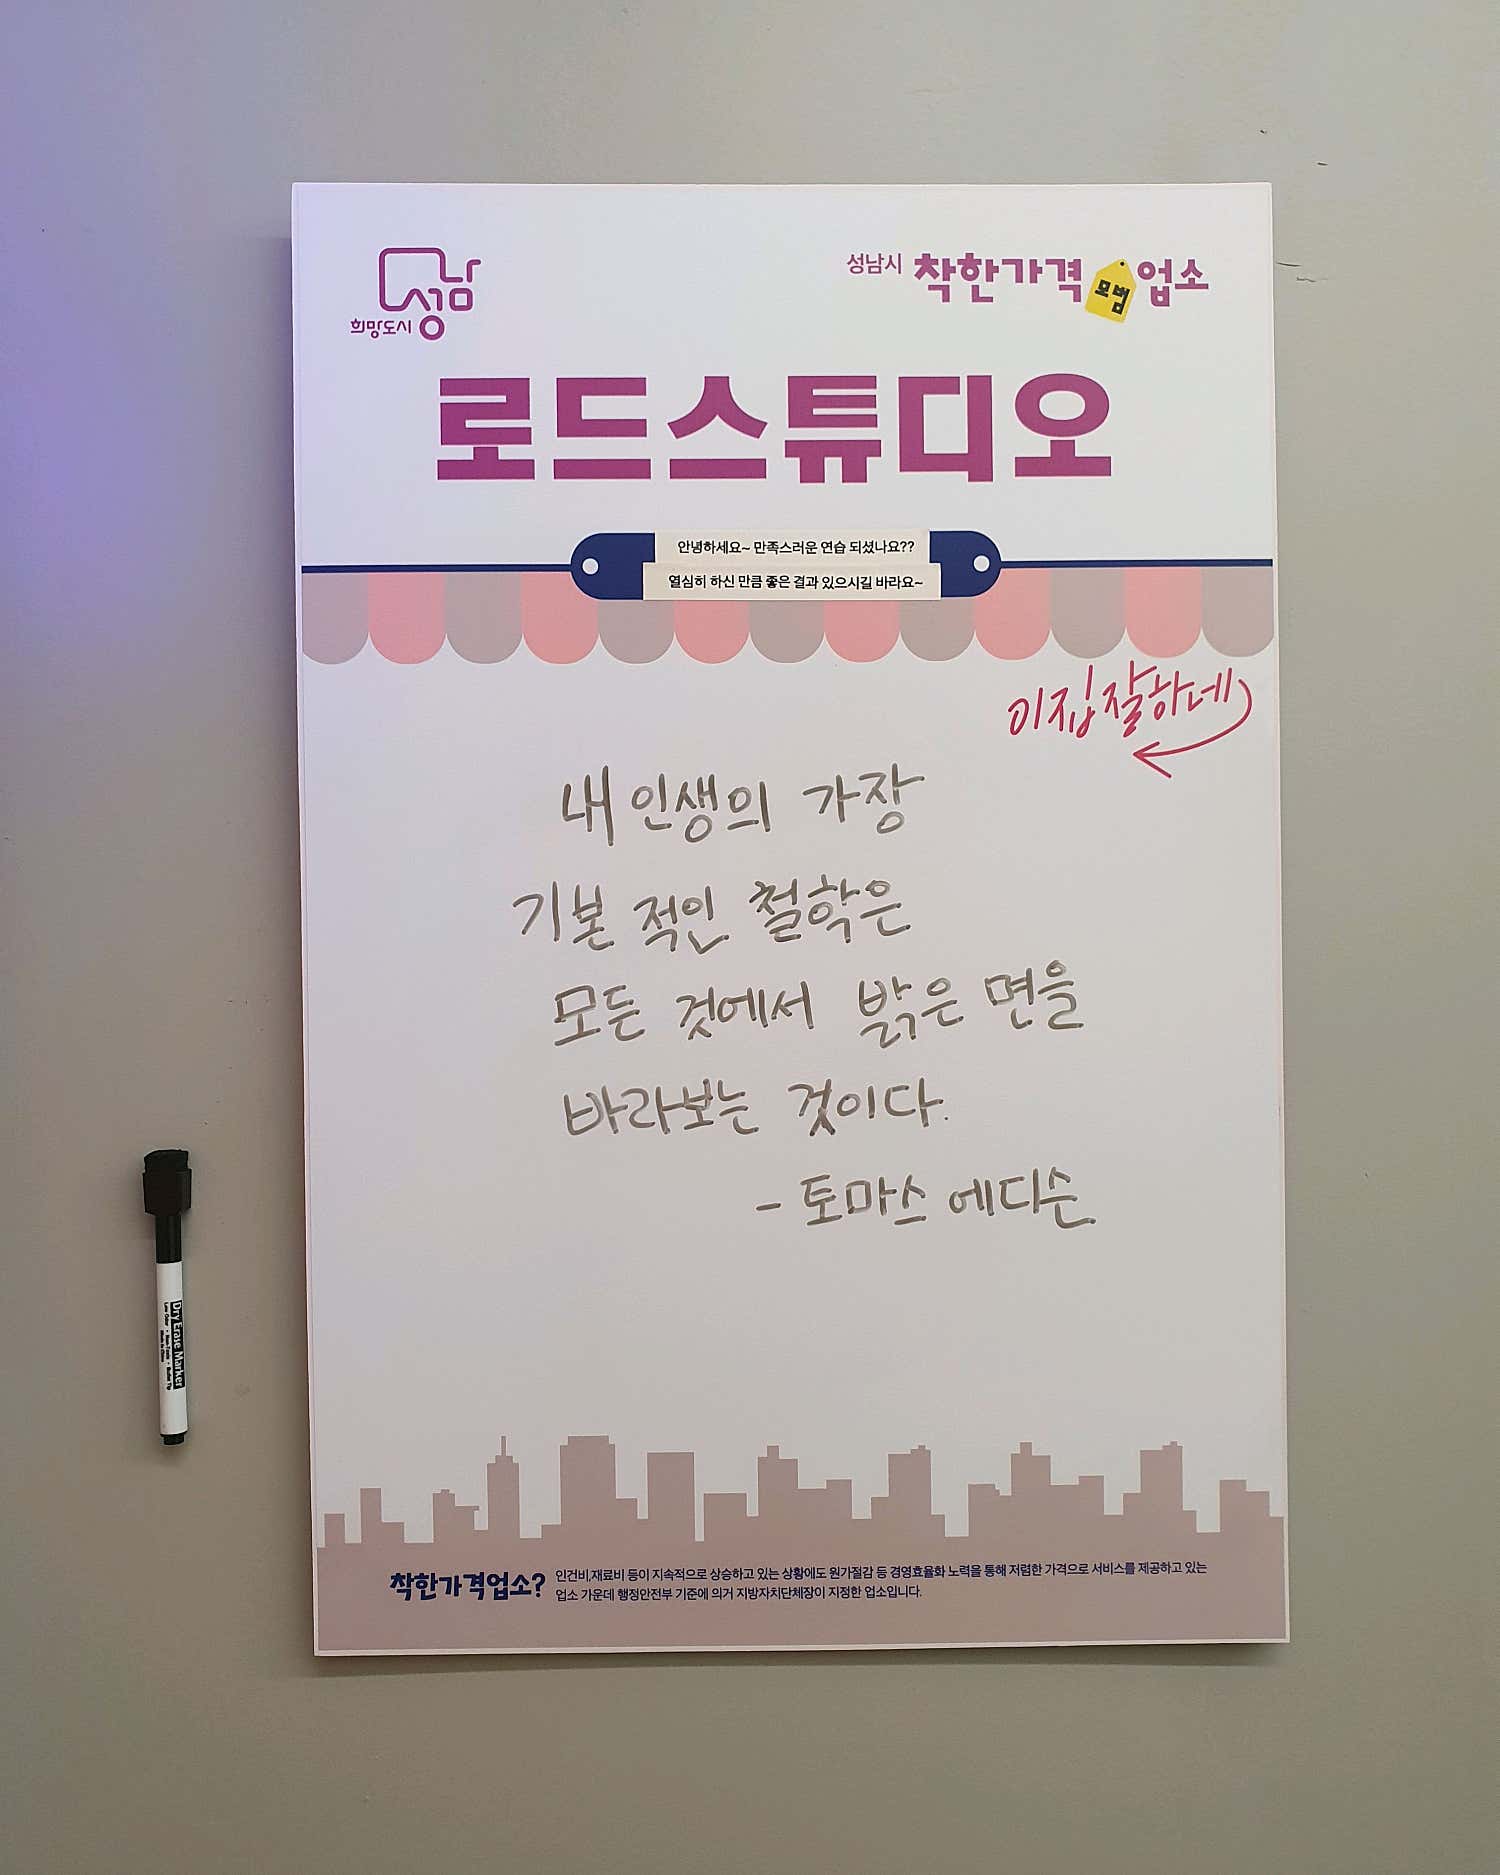 성남
희망도시
성남시 착한가격 모범 업소
로드스튜디오
안녕하세요~ 만족스러운 연습 되셨나요??
열심히 하신 만큼 좋은 결과 있으시길 바라요~
이집 잘하네
내 인생의 가장
기본 적인 철학은
모든 것에서 밝은 면을
바라보는 것이다.
- 토마스 에디슨
Dry Erase Marker
착한가격업소? 인건비,재료비 등이 지속적으로 상승하고 있는 상황에도 원가절감 등 경영효율화 노력을 통해 저렴한 가격으로 서비스를 제공하고 있는
업소 가운데 행정안전부 기준에 의거 지방자치단체장이 지정한 업소입니다.